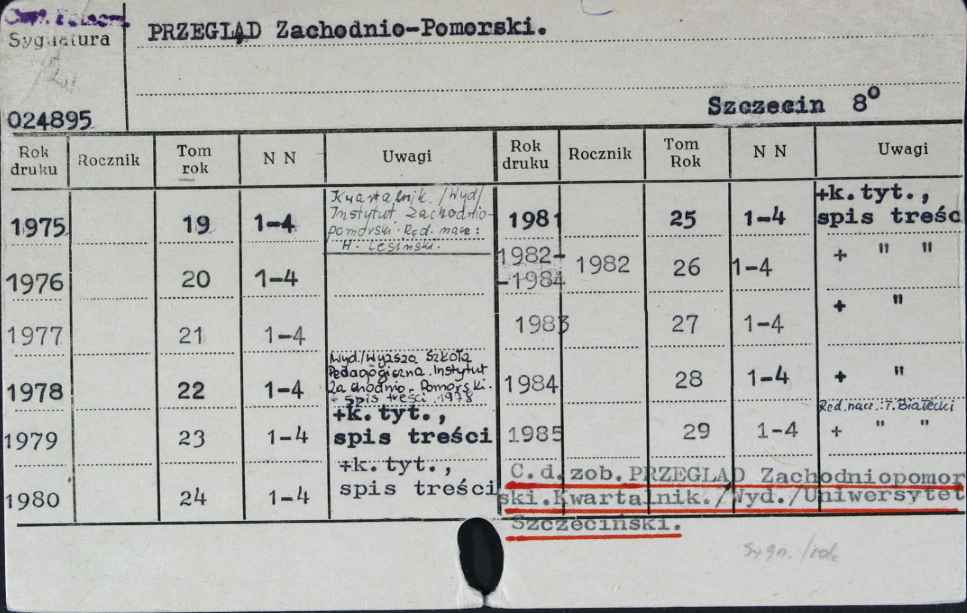 Sygnatura
PRZEGLĄD Zachodnio-Pomorski.
024895
Szczecin 8°
Rok druku Rocznik Tom rok N N Uwagi Rok druku Rocznik Tom Rok N N Uwagi
1975 19 1-4 Kwartalnik. /Wyd/
Instytut Zachodnio-
pomorski. Red. nacz:
H. Lesiński.
1976 20 1-4
1977 21 1-4
1978 22 1-4 Wyd./Wyższa Szkoła
Pedagogiczna. Instytut
Zachodnio-Pomorski.
+ spis treści 1978
+k.tyt.,
1979 23 1-4 spis treści
+k.tyt.,
1980 24 1-4 spis treści
+k.tyt.,
1981 25 1-4 spis treści
1982-
-1984 1982 26 1-4 + " "
1983 27 1-4 + "
1984 28 1-4 + "
Red. nacz.: T. Białecki
1985 29 1-4 + " "
C.d.zob.PRZEGLĄD Zachodniopomor
ski.Kwartalnik./Wyd./Uniwersytet
Szczeciński.
Sygn./rok